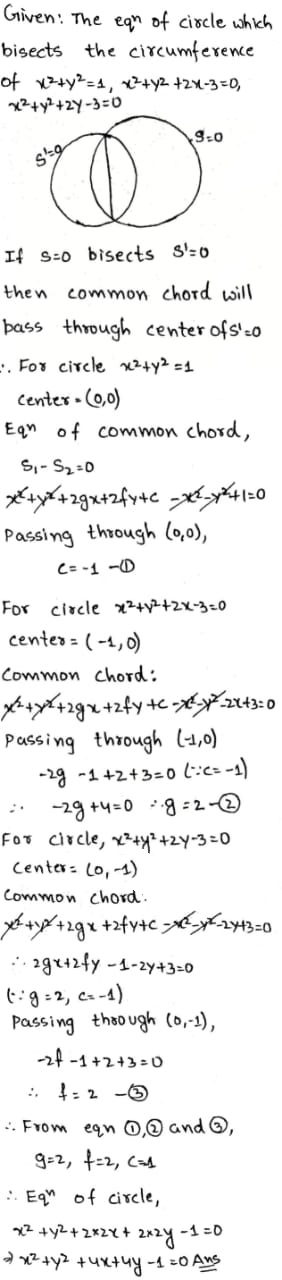 Given: The eqn of circle which
bisects the circumference
of x²+y²=1, x²+y²+2x-3=0,
x²+y²+2y-3=0
S'=0
S=0
If S=0 bisects S'=0
then common chord will
pass through center of S'=0
∴ For circle x²+y²=1
center = (0,0)
Eqn of common chord,
S₁-S₂=0
x²+y²+2gx+2fy+c -x²-y²+1=0
Passing through (0,0),
c=-1 -①
For circle x²+y²+2x-3=0
center = (-1,0)
Common chord:
x²+y²+2gx+2fy+c-x²-y²-2x+3=0
Passing through (-1,0)
-2g -1+2+3=0 (∵c=-1)
∴ -2g+4=0 ∴g=2-②
For circle, x²+y²+2y-3=0
Center= (0,-1)
Common chord.
x²+y²+2gx+2fy+c-x²-y²-2y+3=0
∴ 2gx+2fy-1-2y+3=0
(∵g=2, c=-1)
Passing through (0,-1),
-2f -1+2+3=0
∴ f=2 -③
∴ From eqn ①,② and ③,
g=2, f=2, c=-1
∴ Eqn of circle,
x²+y²+2×2x+2×2y-1=0
⇒ x²+y²+4x+4y-1=0 Ans